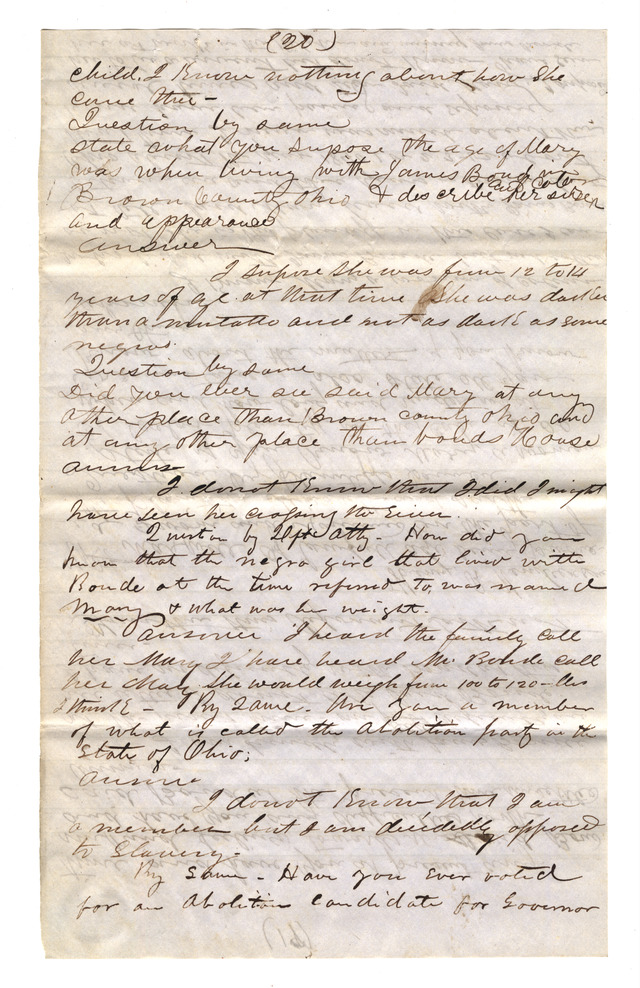 (20)
child. I Know nothing about how She
came ther -
Question by same
state what you supose the age of Mary
was when living with James Bond in
Brown County Ohio & describe her size
and appearance
Answer
I supose She was from 12 to 14
years of age at that time She was darker
than a mulatto and not as dark as some
negros.
Question by same
Did you ever see said Mary at any
other place than Brown county Ohio and
at any other place than bonds House
answer
I do not Know that I did I might
have seen her crossing the River.
Question by Atty - How did you
know that the negro girl that lived with
Bonde at the time refered to, was named
Mary & what was her weight.
answer I heard the family call
her Mary I have heard Mr. Bonde call
her Mary She would weigh from 100 to 120 lbs
I think - By Same. Are you a member
of what is called the Abolition party in the
State of Ohio;
answer
I do not Know that I am
a member but I am decidedly opposed
to Slavery -
By Same - Have you ever voted
for an Abolition Candidate for Governor